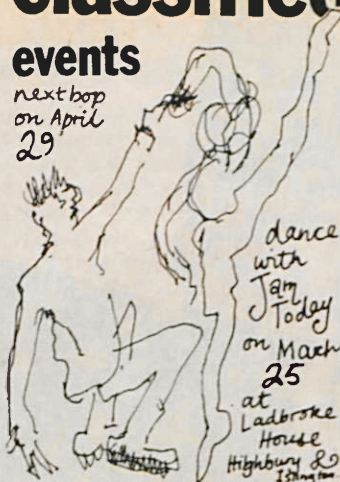 classified
events
next bop
on April
29
dance
with
Jam
Today
on March
25
at
Ladbroke
House
Highbury &
Islington